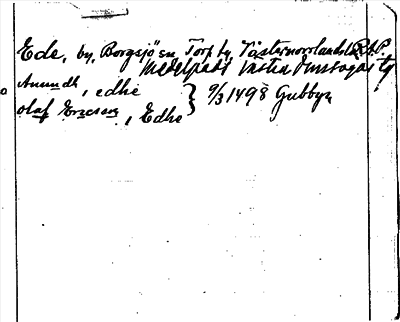 Ede, by, Borgsjö sn, Torp tg, Västernorrlands l. R.A.P.
Medelpads Västra Domsagas tg
Anundh, edhe } 9/3 1498 Gubbyn
olaf Ericson, Edhe